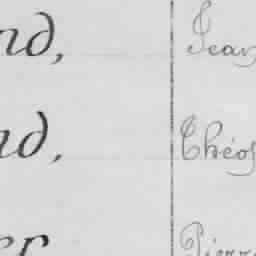 nd, Jean
nd, Théop
er Pierre